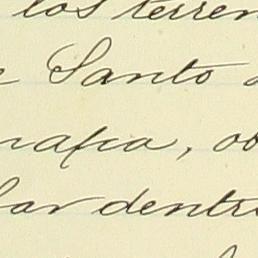 los terren
e Santo
nafia, ob
lar dentro